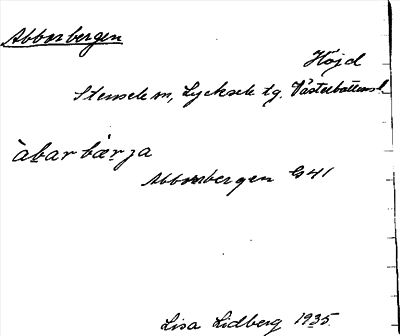 Abborbergen
Höjd
Stensele sn, Lycksele tg. Västerbottens l.
àbar bærja
Abborrbergen G41
Lisa Lidberg 1935.